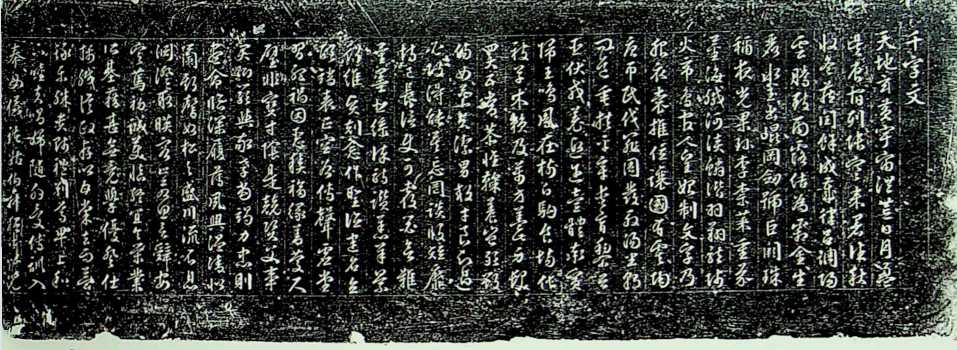 千字文
天地玄黃宇宙洪荒日月盈
昃辰宿列張寒來暑往秋
收冬藏閏餘成歲律呂調陽
雲騰致雨露結為霜金生
麗水玉出崑岡劍號巨闕珠
稱夜光果珍李柰菜重芥
薑海鹹河淡鱗潛羽翔龍師
火帝鳥官人皇始制文字乃
服衣裳推位讓國有虞陶
唐弔民伐罪周發殷湯坐朝
問道垂拱平章愛育黎首
臣伏戎羌遐邇壹體率賓
歸王鳴鳳在樹白駒食場化
被草木賴及萬方蓋此身髮
四大五常恭惟鞠養豈敢毀
傷女慕貞潔男效才良知過
必改得能莫忘罔談彼短靡
恃己長信使可覆器欲難
量墨悲絲染詩讚羔羊景
行維賢克念作聖德建名立
形端表正空谷傳聲虛堂
習聽禍因惡積福緣善慶尺
璧非寶寸陰是競資父事
君曰嚴與敬孝當竭力忠則
盡命臨深履薄夙興溫凊似
蘭斯馨如松之盛川流不息
淵澄取映容止若思言辭安
定篤初誠美慎終宜令榮業
所基籍甚無竟學優登仕
攝職從政存以甘棠去而益
詠樂殊貴賤禮別尊卑上和
下睦夫唱婦隨外受傅訓入
奉母儀諸姑伯叔猶子比兒